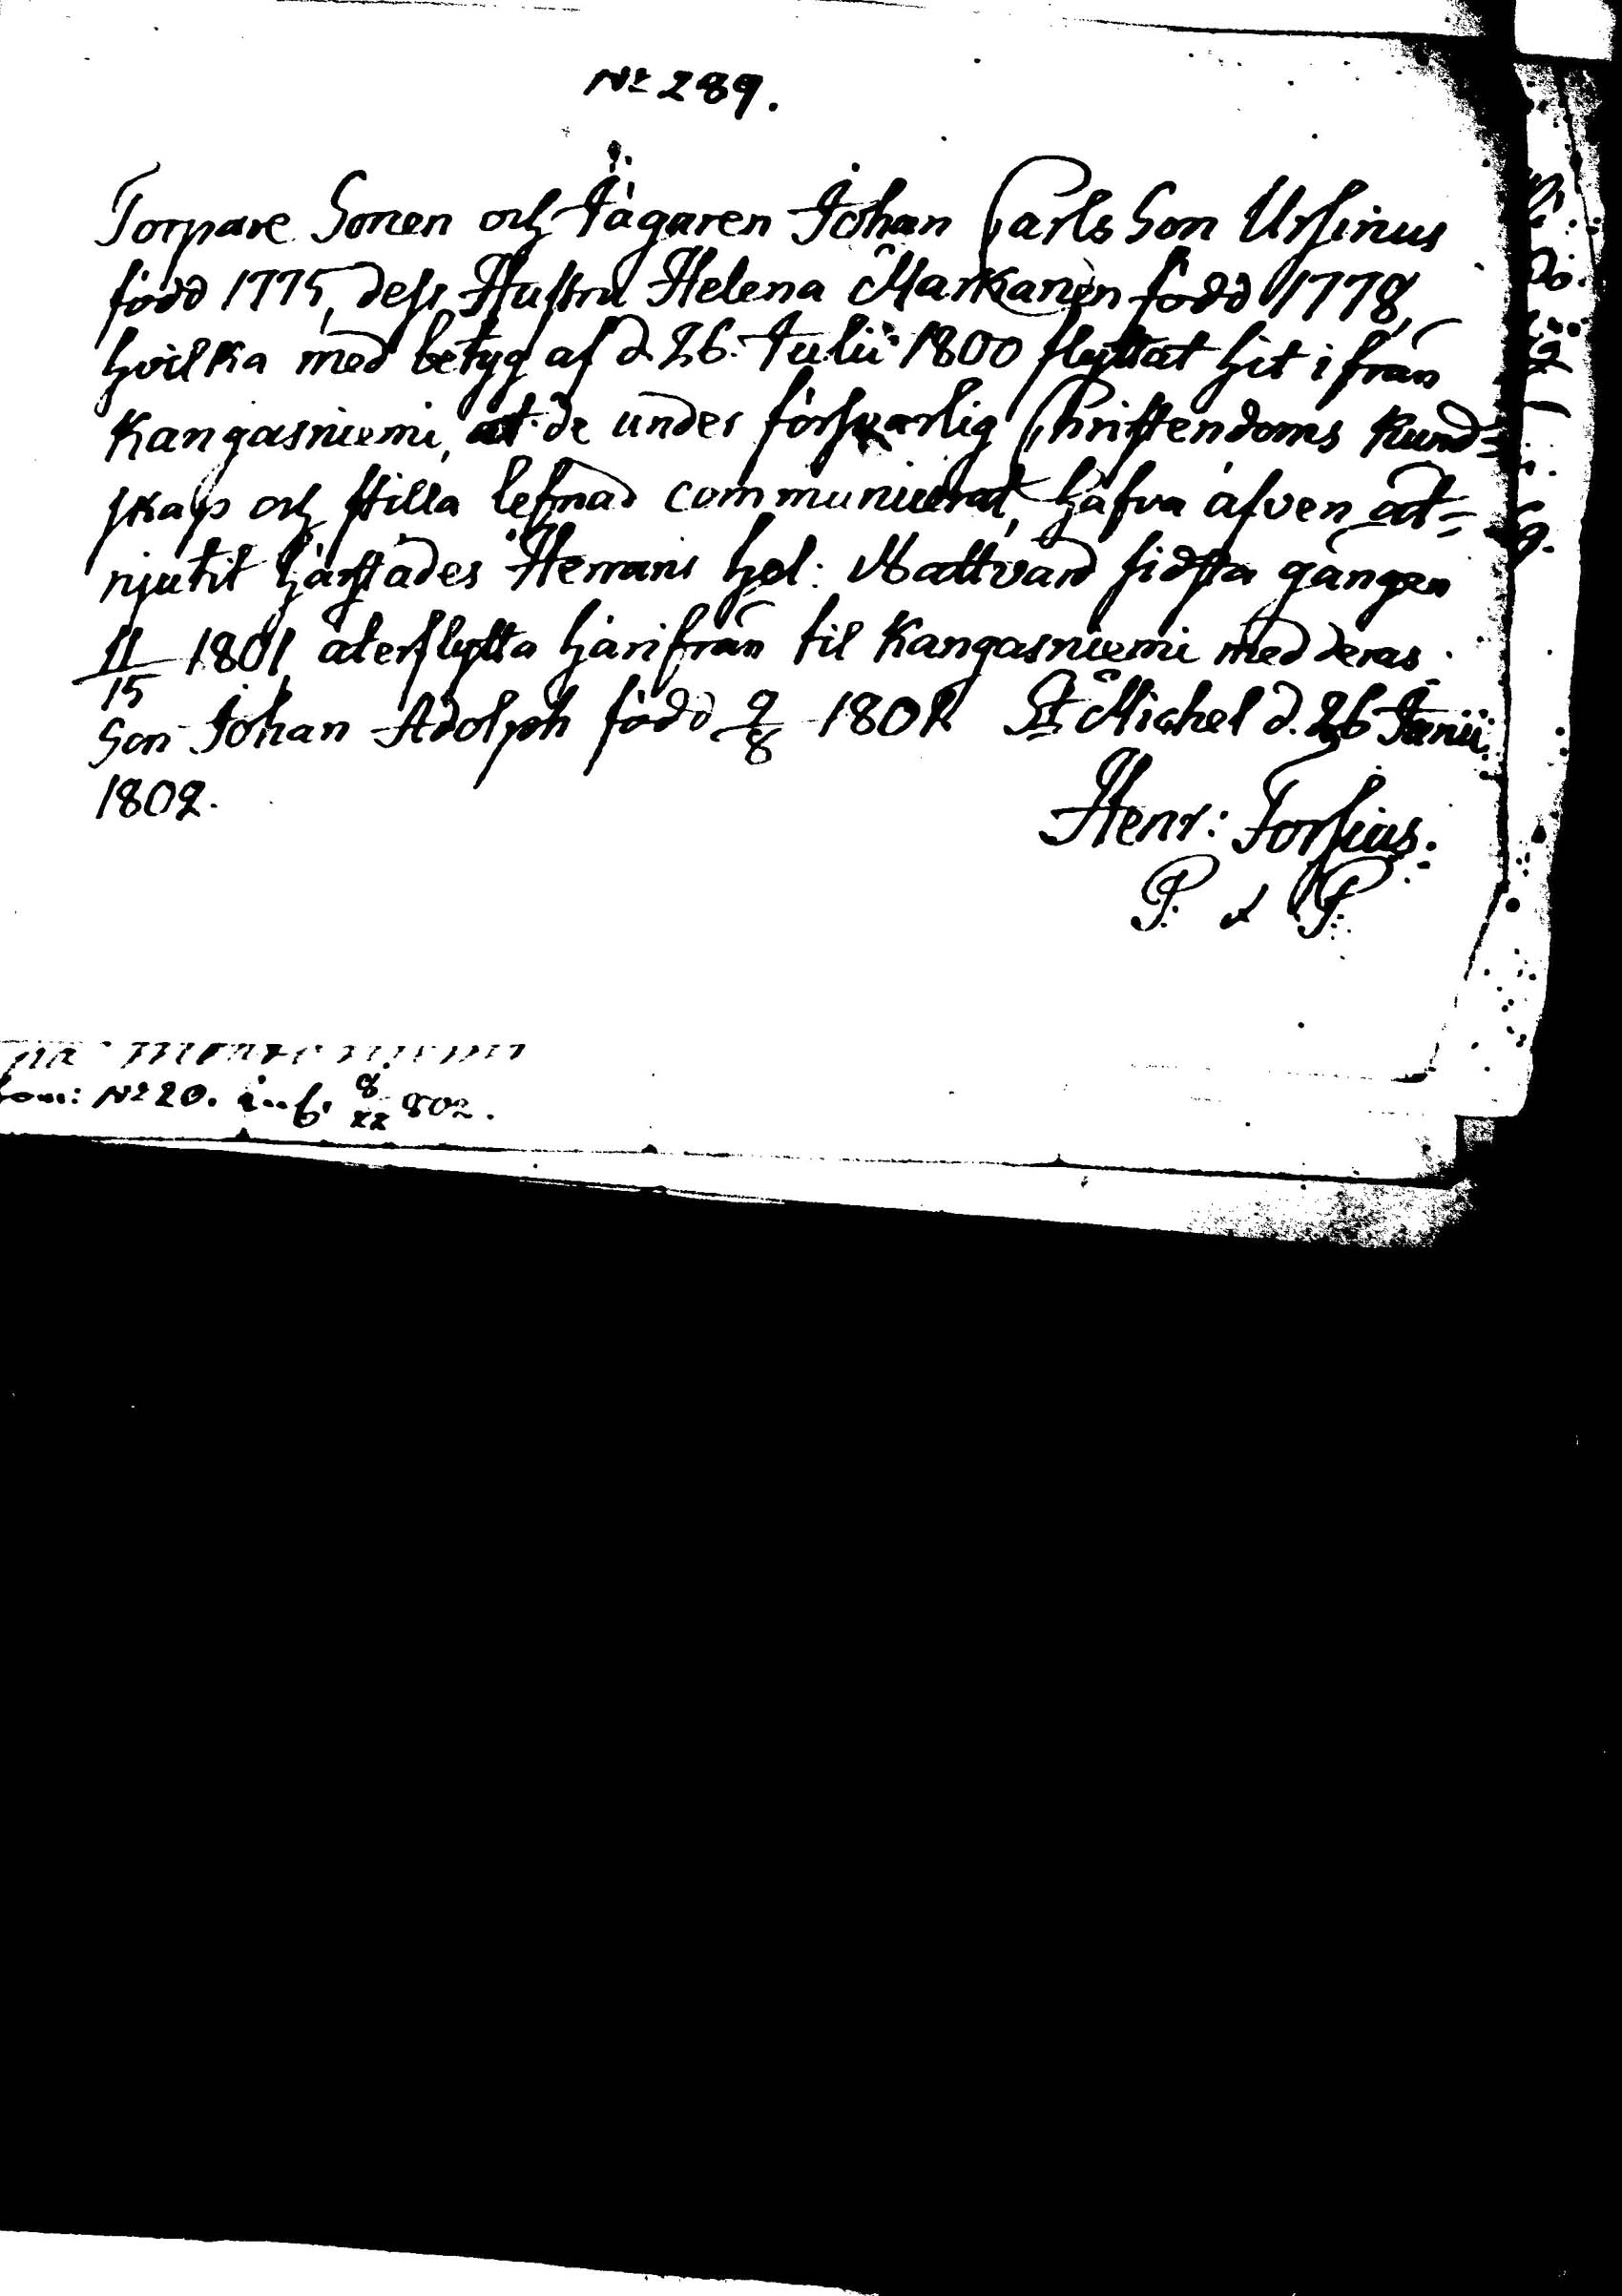 No 289.
Torpare Sonen och Jägaren Johan Carls Son Ursinus
född 1775, dess Hustru Helena Markanen född 1778,
hvilka med betyg af d. 26. Julii 1800 flyttat hit ifrån
Kangasniemi, at de under försvarlig Christendoms Kund=
skap och stilla lefnad communicerat, hafva äfven åt=
njutit härstädes Herrans hel: Nattvard sidsta gången
11/15 1801, återflytta härifrån til Kangasniemi med deras
Son Johan Adolph född 9/8 1801. St Michel d. 26 Junii
1802.
Henr: Forsius.
P. & P.
No 20. 8/XX 802.